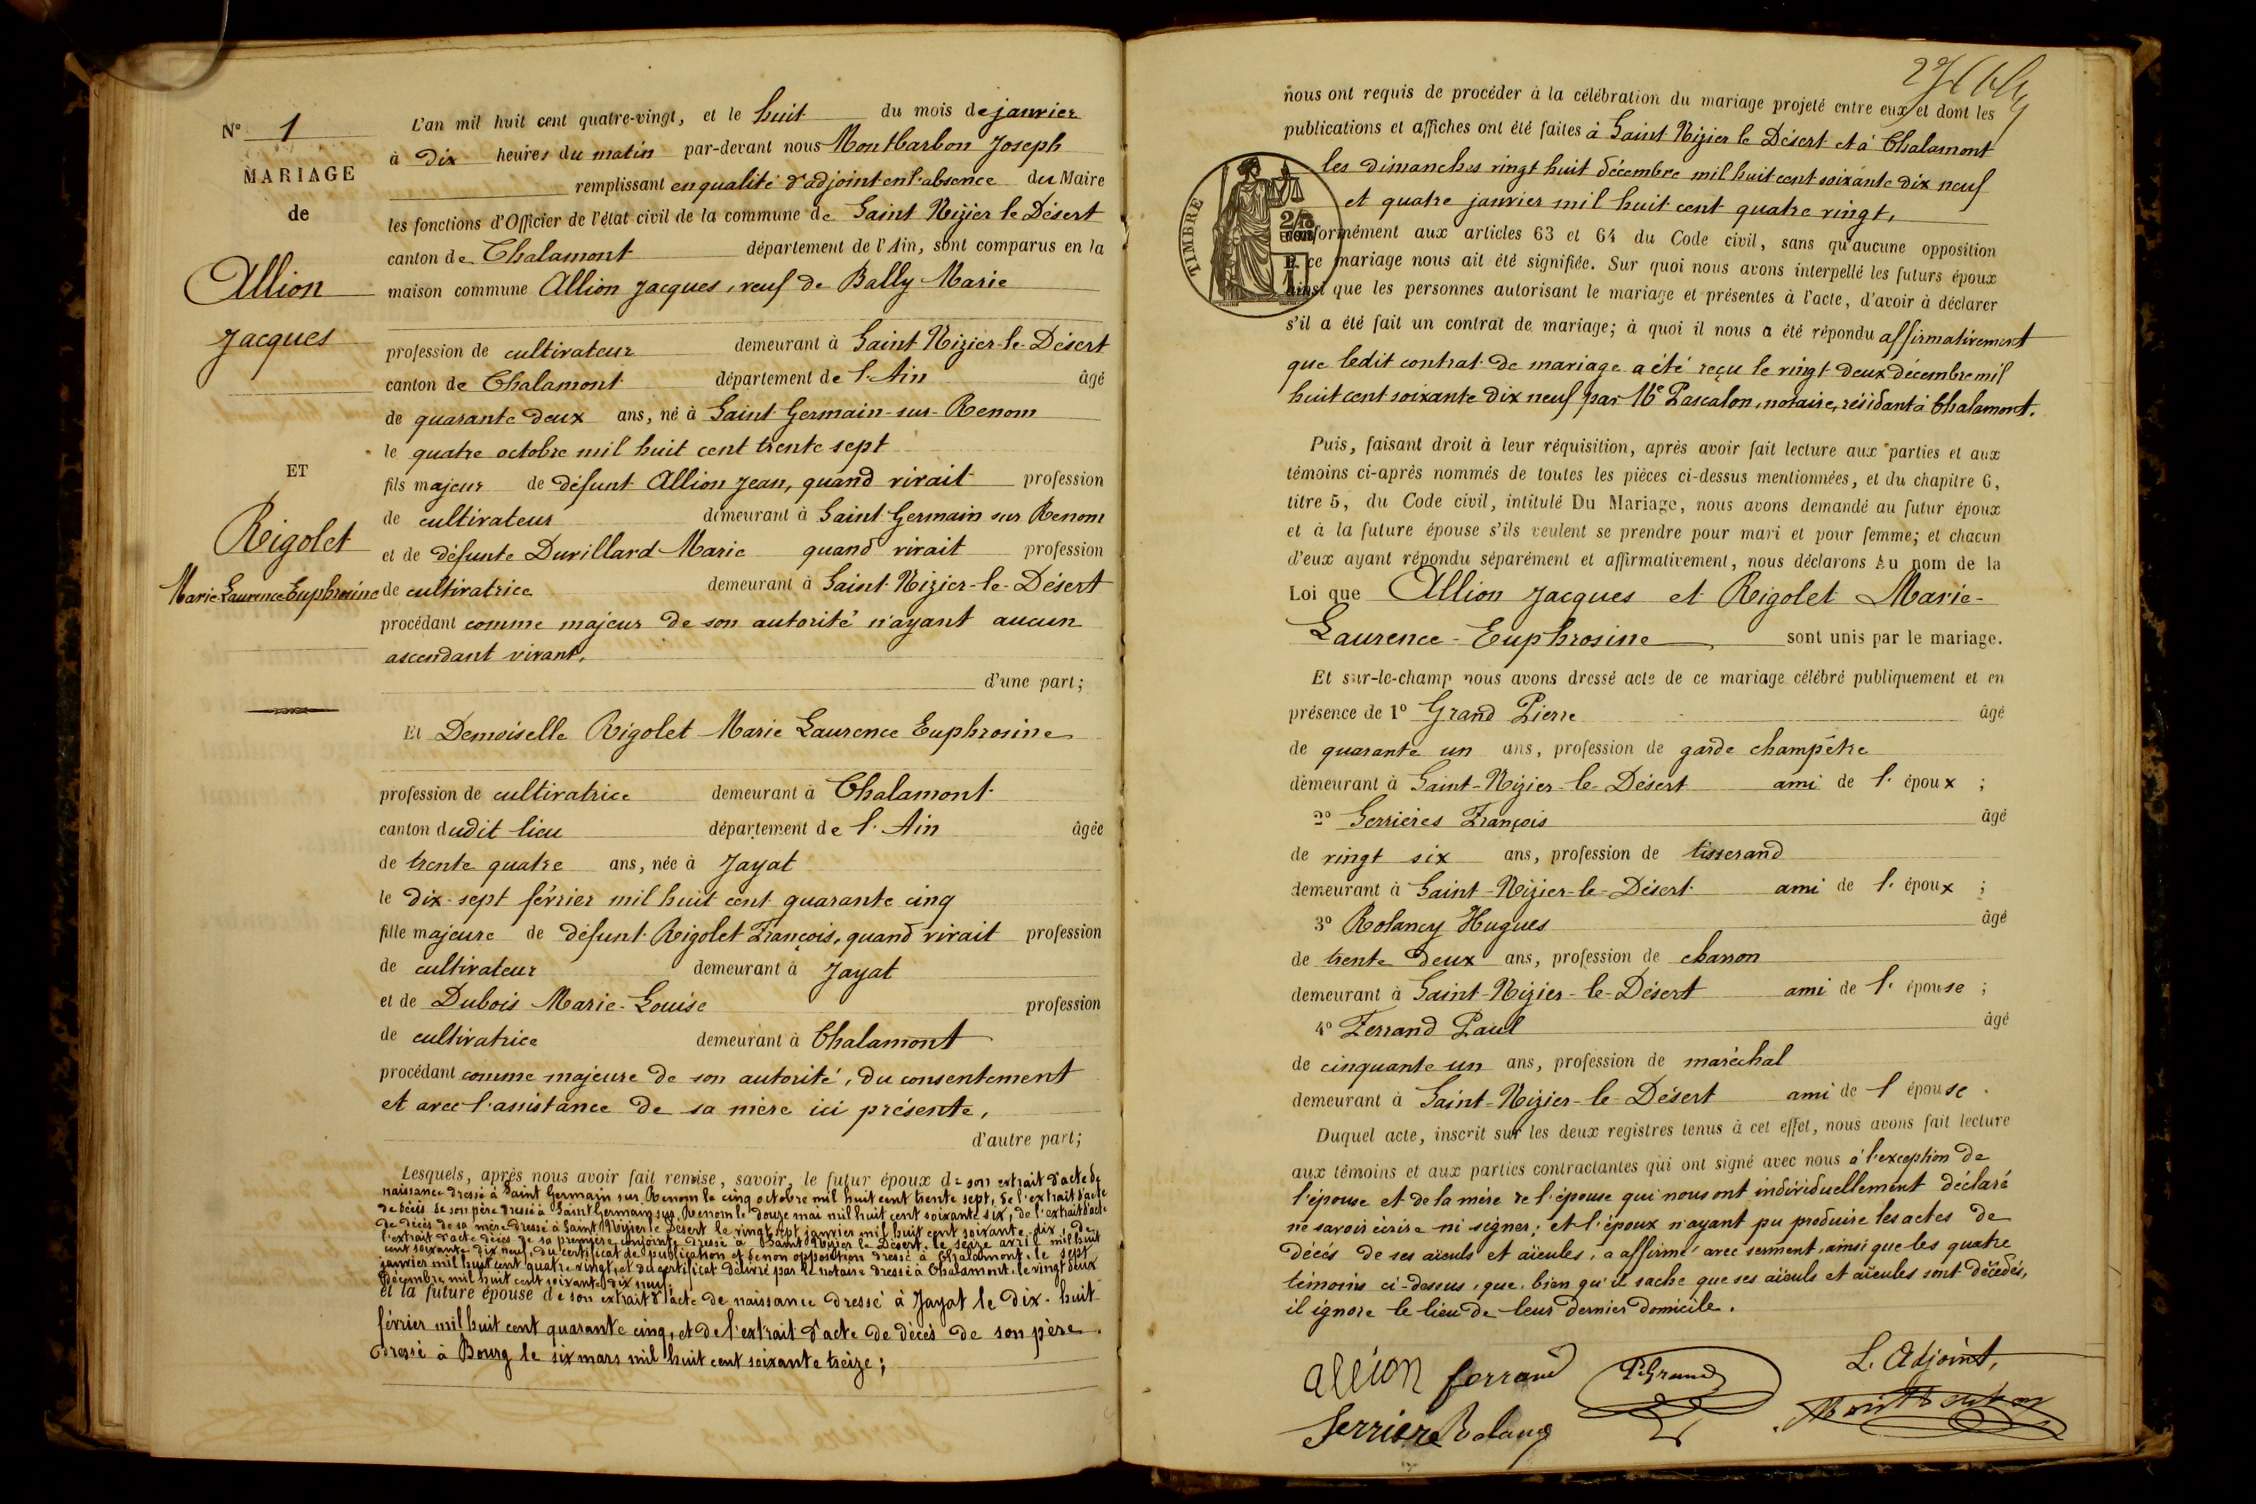 N° 1
MARIAGE
de
Allion
Jacques
ET
Rigolet
Marie Laurence Euphrosine
L'an mil huit cent quatre-vingt, et le huit du mois de janvier
à dix heures du matin par-devant nous Montbarbon Joseph
remplissant en qualité d'adjoint en l'absence du Maire
les fonctions d'Officier de l'état civil de la commune de Saint Nizier le Désert
canton de Chalamont département de l'Ain, sont comparus en la
maison commune Allion Jacques, veuf de Bally Marie
profession de cultivateur demeurant à Saint Nizier-le-Désert
canton de Chalamont département de l'Ain âgé
de quarante deux ans, né à Saint Germain-sur-Renom
le quatre octobre mil huit cent trente sept
fils majeur de défunt Allion Jean, quand vivait profession
de cultivateur demeurant à Saint Germain sur Renom
et de défunte Duvillard Marie quand vivait profession
de cultivatrice demeurant à Saint-Nizier-le-Désert
procédant comme majeur de son autorité n'ayant aucun
ascendant vivant,
d'une part;
Et Demoiselle Rigolet Marie Laurence Euphrosine
profession de cultivatrice demeurant à Chalamont
canton dudit lieu département de l'Ain âgée
de trente quatre ans, née à Jayat
le dix-sept février mil huit cent quarante cinq
fille majeure de défunt Rigolet François, quand vivait profession
de cultivateur demeurant à Jayat
et de Dubois Marie-Louise profession
de cultivatrice demeurant à Chalamont
procédant comme majeure de son autorité, du consentement
et avec l'assistance de sa mère ici présente,
d'autre part;
Lesquels, après nous avoir fait remise, savoir, le futur époux de son extrait d'acte de
naissance dressé à Saint Germain sur Renom le cinq octobre mil huit cent trente sept, de l'extrait d'acte
de décès de son père dressé à Saint Germain sur Renom le douze mai mil huit cent soixante six, de l'extrait d'acte
de décès de sa mère dressé à Saint Nizier le Désert le vingt sept janvier mil huit cent soixante dix, de
l'extrait d'acte de décès de sa première conjointe dressé à Saint Nizier le Désert, le seize avril mil huit
cent soixante dix neuf, du certificat de publication et de non opposition dressé à Chalamont, le sept
janvier mil huit cent quatre vingt, et du certificat délivré par le notaire dressé à Chalamont, le vingt deux
décembre mil huit cent soixante dix neuf;
et la future épouse de son extrait d'acte de naissance dressé à Jayat le dix-huit
février mil huit cent quarante cinq, et de l'extrait d'acte de décès de son père
dressé à Bourg le six mars mil huit cent soixante treize;
nous ont requis de procéder à la célébration du mariage projeté entre eux et dont les
publications et affiches ont été faites à Saint Nizier le Désert et à Chalamont
les dimanches vingt huit décembre mil huit cent soixante dix neuf
et quatre janvier mil huit cent quatre vingt,
TIMBRE
conformément aux articles 63 et 64 du Code civil, sans qu'aucune opposition
à ce mariage nous ait été signifiée. Sur quoi nous avons interpellé les futurs époux
ainsi que les personnes autorisant le mariage et présentes à l'acte, d'avoir à déclarer
s'il a été fait un contrat de mariage; à quoi il nous a été répondu affirmativement
que ledit contrat de mariage a été reçu le vingt deux décembre mil
huit cent soixante dix neuf par Me Pascalon, notaire, résidant à Chalamont.
Puis, faisant droit à leur réquisition, après avoir fait lecture aux parties et aux
témoins ci-après nommés de toutes les pièces ci-dessus mentionnées, et du chapitre 6,
titre 5, du Code civil, intitulé Du Mariage, nous avons demandé au futur époux
et à la future épouse s'ils veulent se prendre pour mari et pour femme; et chacun
d'eux ayant répondu séparément et affirmativement, nous déclarons Au nom de la
Loi que Allion Jacques et Rigolet Marie-
Laurence-Euphrosine sont unis par le mariage.
Et sur-le-champ nous avons dressé acte de ce mariage célébré publiquement et en
présence de 1° Grand Pierre âgé
de quarante un ans, profession de garde champêtre
demeurant à Saint-Nizier-le-Désert ami de l'époux ;
2° Serrières François âgé
de vingt six ans, profession de tisserand
demeurant à Saint-Nizier-le-Désert ami de l'époux ;
3° Rolancy Hugues âgé
de trente deux ans, profession de charron
demeurant à Saint-Nizier-le-Désert ami de l'épouse ;
4° Ferrand Paul âgé
de cinquante un ans, profession de maréchal
demeurant à Saint-Nizier-le-Désert ami de l'épouse.
Duquel acte, inscrit sur les deux registres tenus à cet effet, nous avons fait lecture
aux témoins et aux parties contractantes qui ont signé avec nous à l'exception de
l'épouse et de la mère de l'épouse qui nous ont individuellement déclaré
ne savoir écrire ni signer; et l'époux n'ayant pu produire les actes de
décès de ses aïeuls et aïeules, a affirmé avec serment, ainsi que les quatre
témoins ci-dessus, que, bien qu'il sache que ses aïeuls et aïeules sont décédés,
il ignore le lieu de leur dernier domicile.
L'Adjoint,
allion ferrand P. Grand Montbarbon
Serriere Rolancy